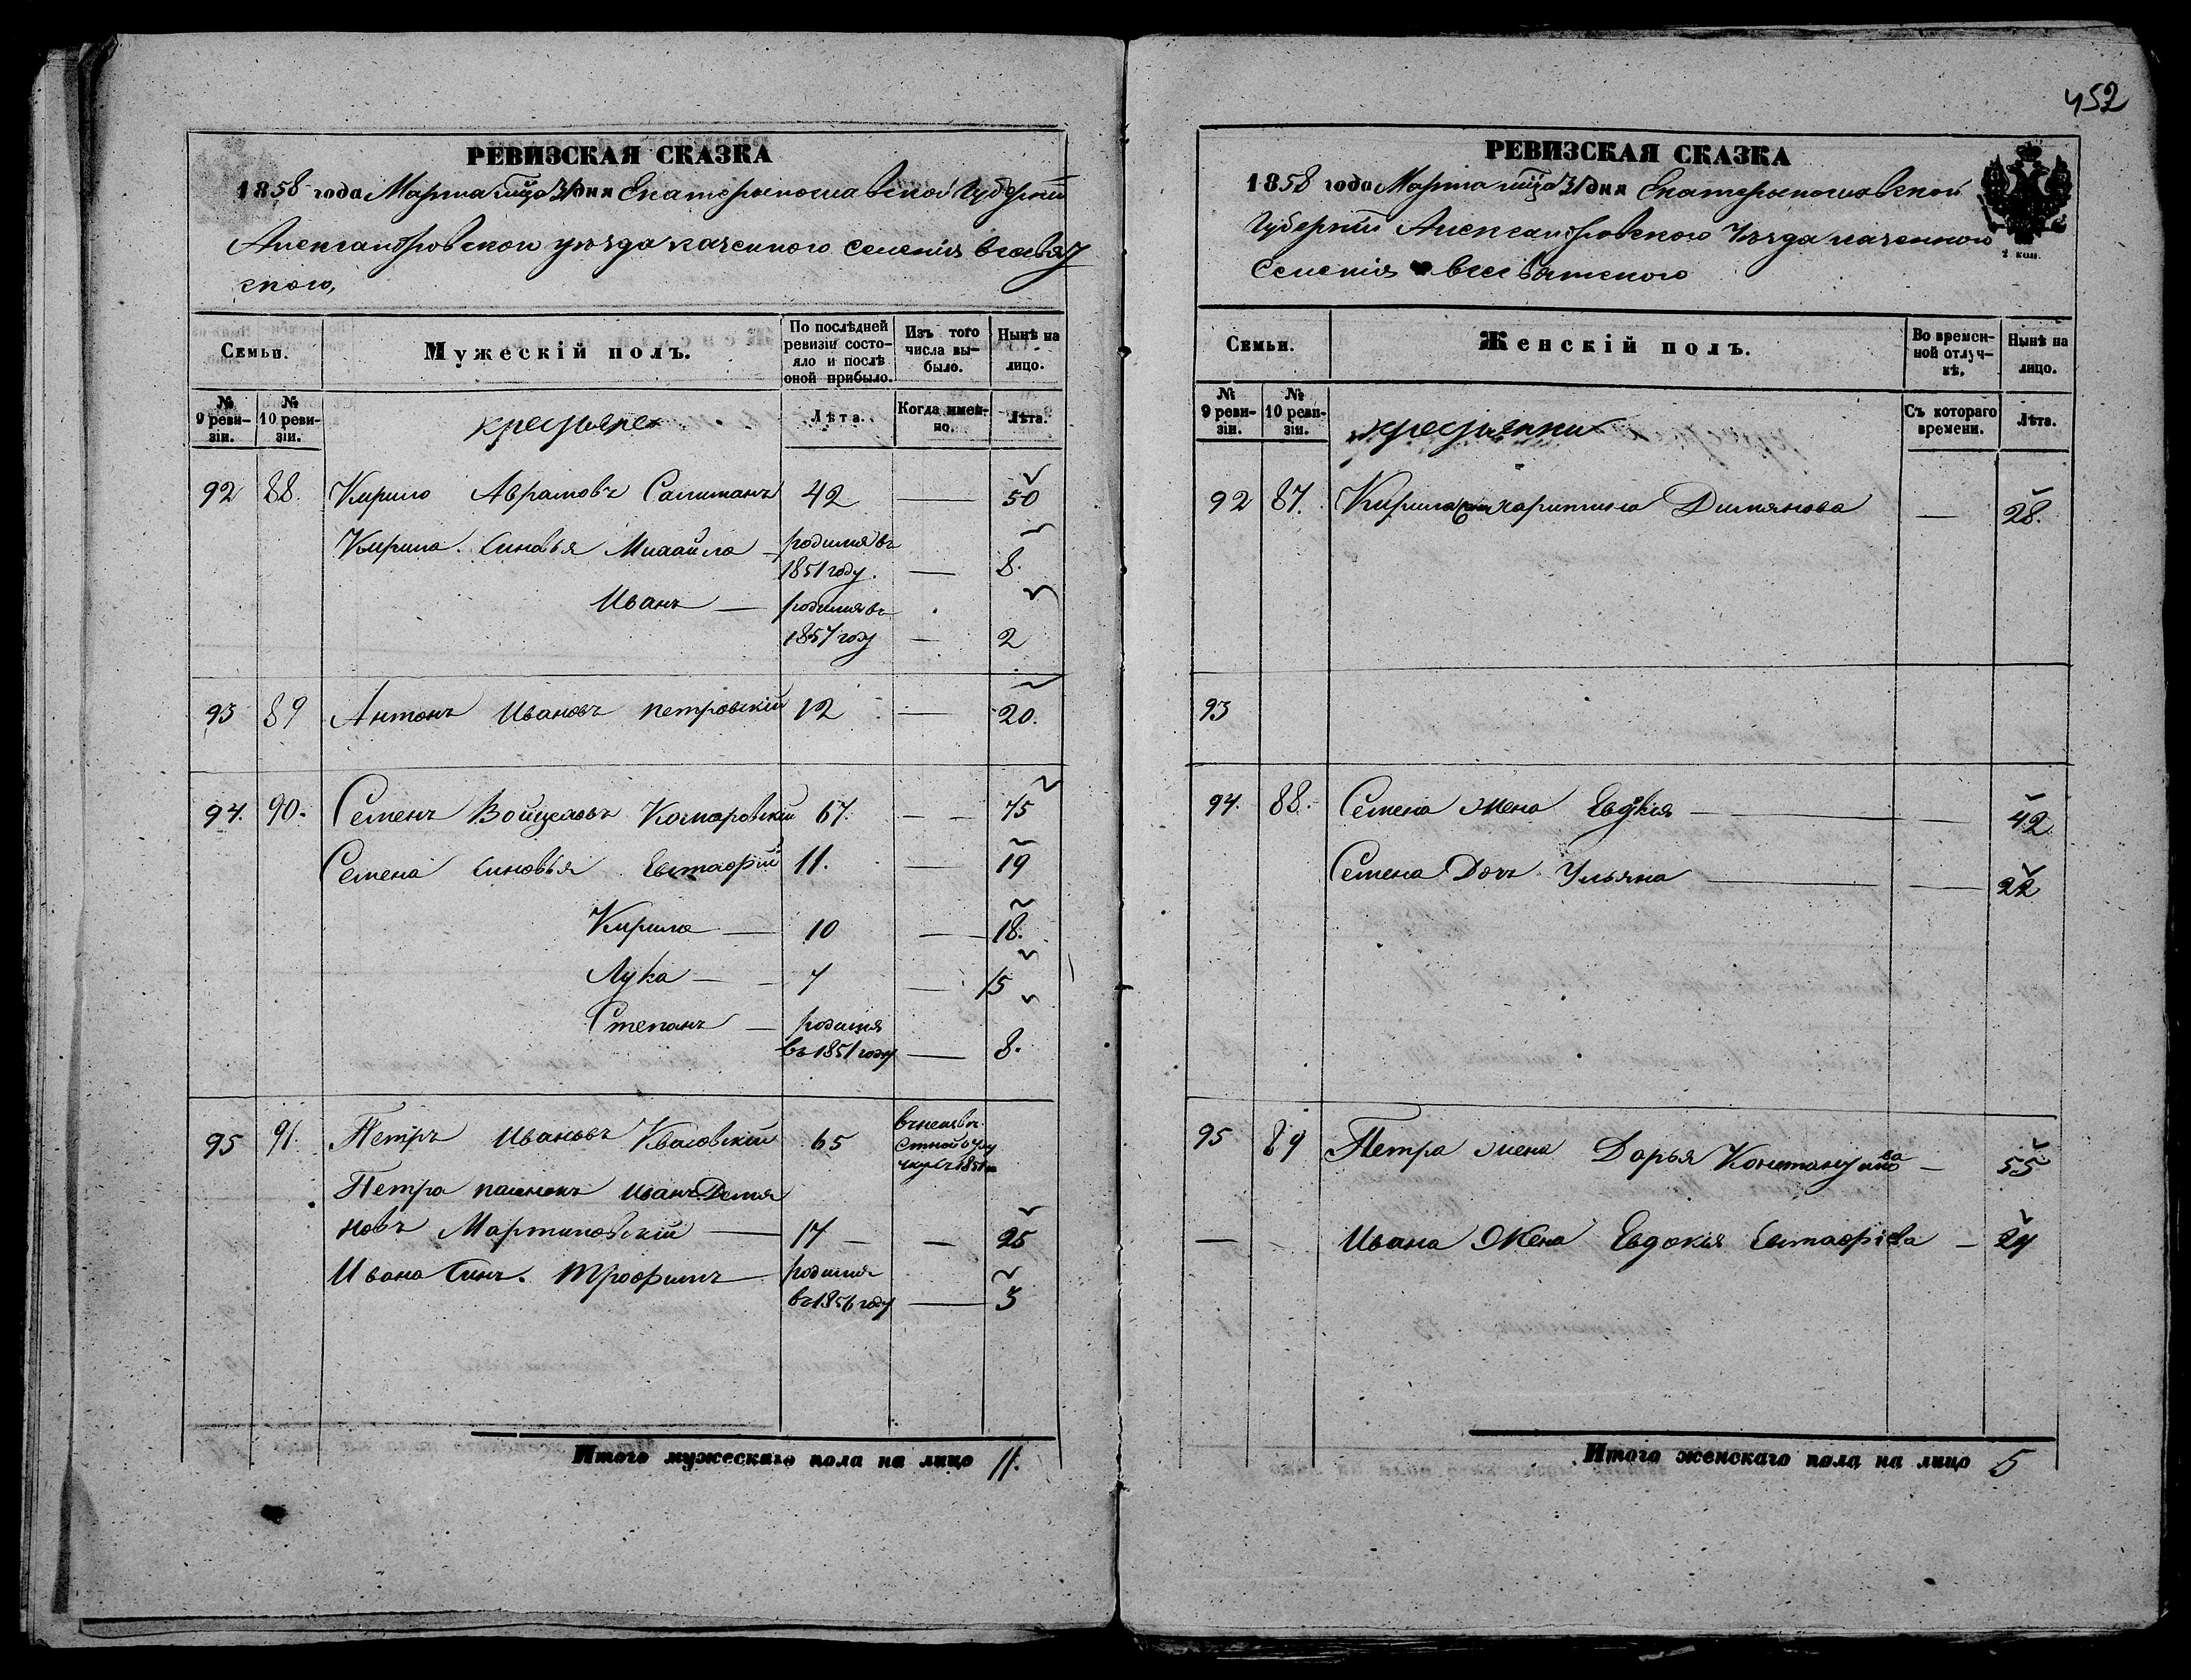 РЕВИЗСКАЯ СКАЗКА
1858 года Марта мца 31 дня Екатеринославской Губерніи
Александровского уезда казенного селенія всесвят
ского,
Семьи.
Мужескій полъ.
По послѣдней ревизіи состояло и послѣ оной прибыло.
Изъ того числа выбыло.
Нынѣ на лицо.
№ 9 ревизіи.
№ 10 ревизіи.
крестьяне
Лѣта.
Когда именно.
Лѣта.
92 88. Кирило Аврамовъ 42 — 50
Кирила синовья Михайла родился въ 1851 году. — 8.
Иванъ — родился въ 1857 году — 2
93 89 Антонъ Ивановъ петровскій 12 — 20.
94. 90. Семенъ Войцеховъ Комаровскій 67. — 75
Семена синовья Евстафій 11. — 19
Кирило — 10 — 18.
Лука — 7 — 15
Степанъ — родился въ 1851 году — 8.
95 91. Петръ Ивановъ 65 въ неизвестной отлучке съ 1851
Петра пасинокъ Иванъ Демя
новъ Мартиновскій — 17 — — 25
Ивана Синъ. Трофимъ родился въ 1856 году — 3
Итого мужескаго пола на лицо 11.
452
РЕВИЗСКАЯ СКАЗКА
1858 года Марта мца 31 дня Екатеринославской
Губерніи Александровского Уезда казенного
Селенія всесвятского
2 коп.
Семьи.
Женскій полъ.
Во временной отлучкѣ.
Нынѣ на лицо.
№ 9 ревизіи.
№ 10 ревизіи.
крестьянки
Съ котораго времени.
Лѣта.
92 87. Кирила жена харитина Димянова — 28.
93
94. 88. Семена жена Евдокія — — 42
Семена Дочъ Ульяна — — 22
95 89 Петра жена Дарья Константинова — 55
— - Ивана Жена Евдокія Евстафіева — 24
Итого женскаго пола на лицо 5